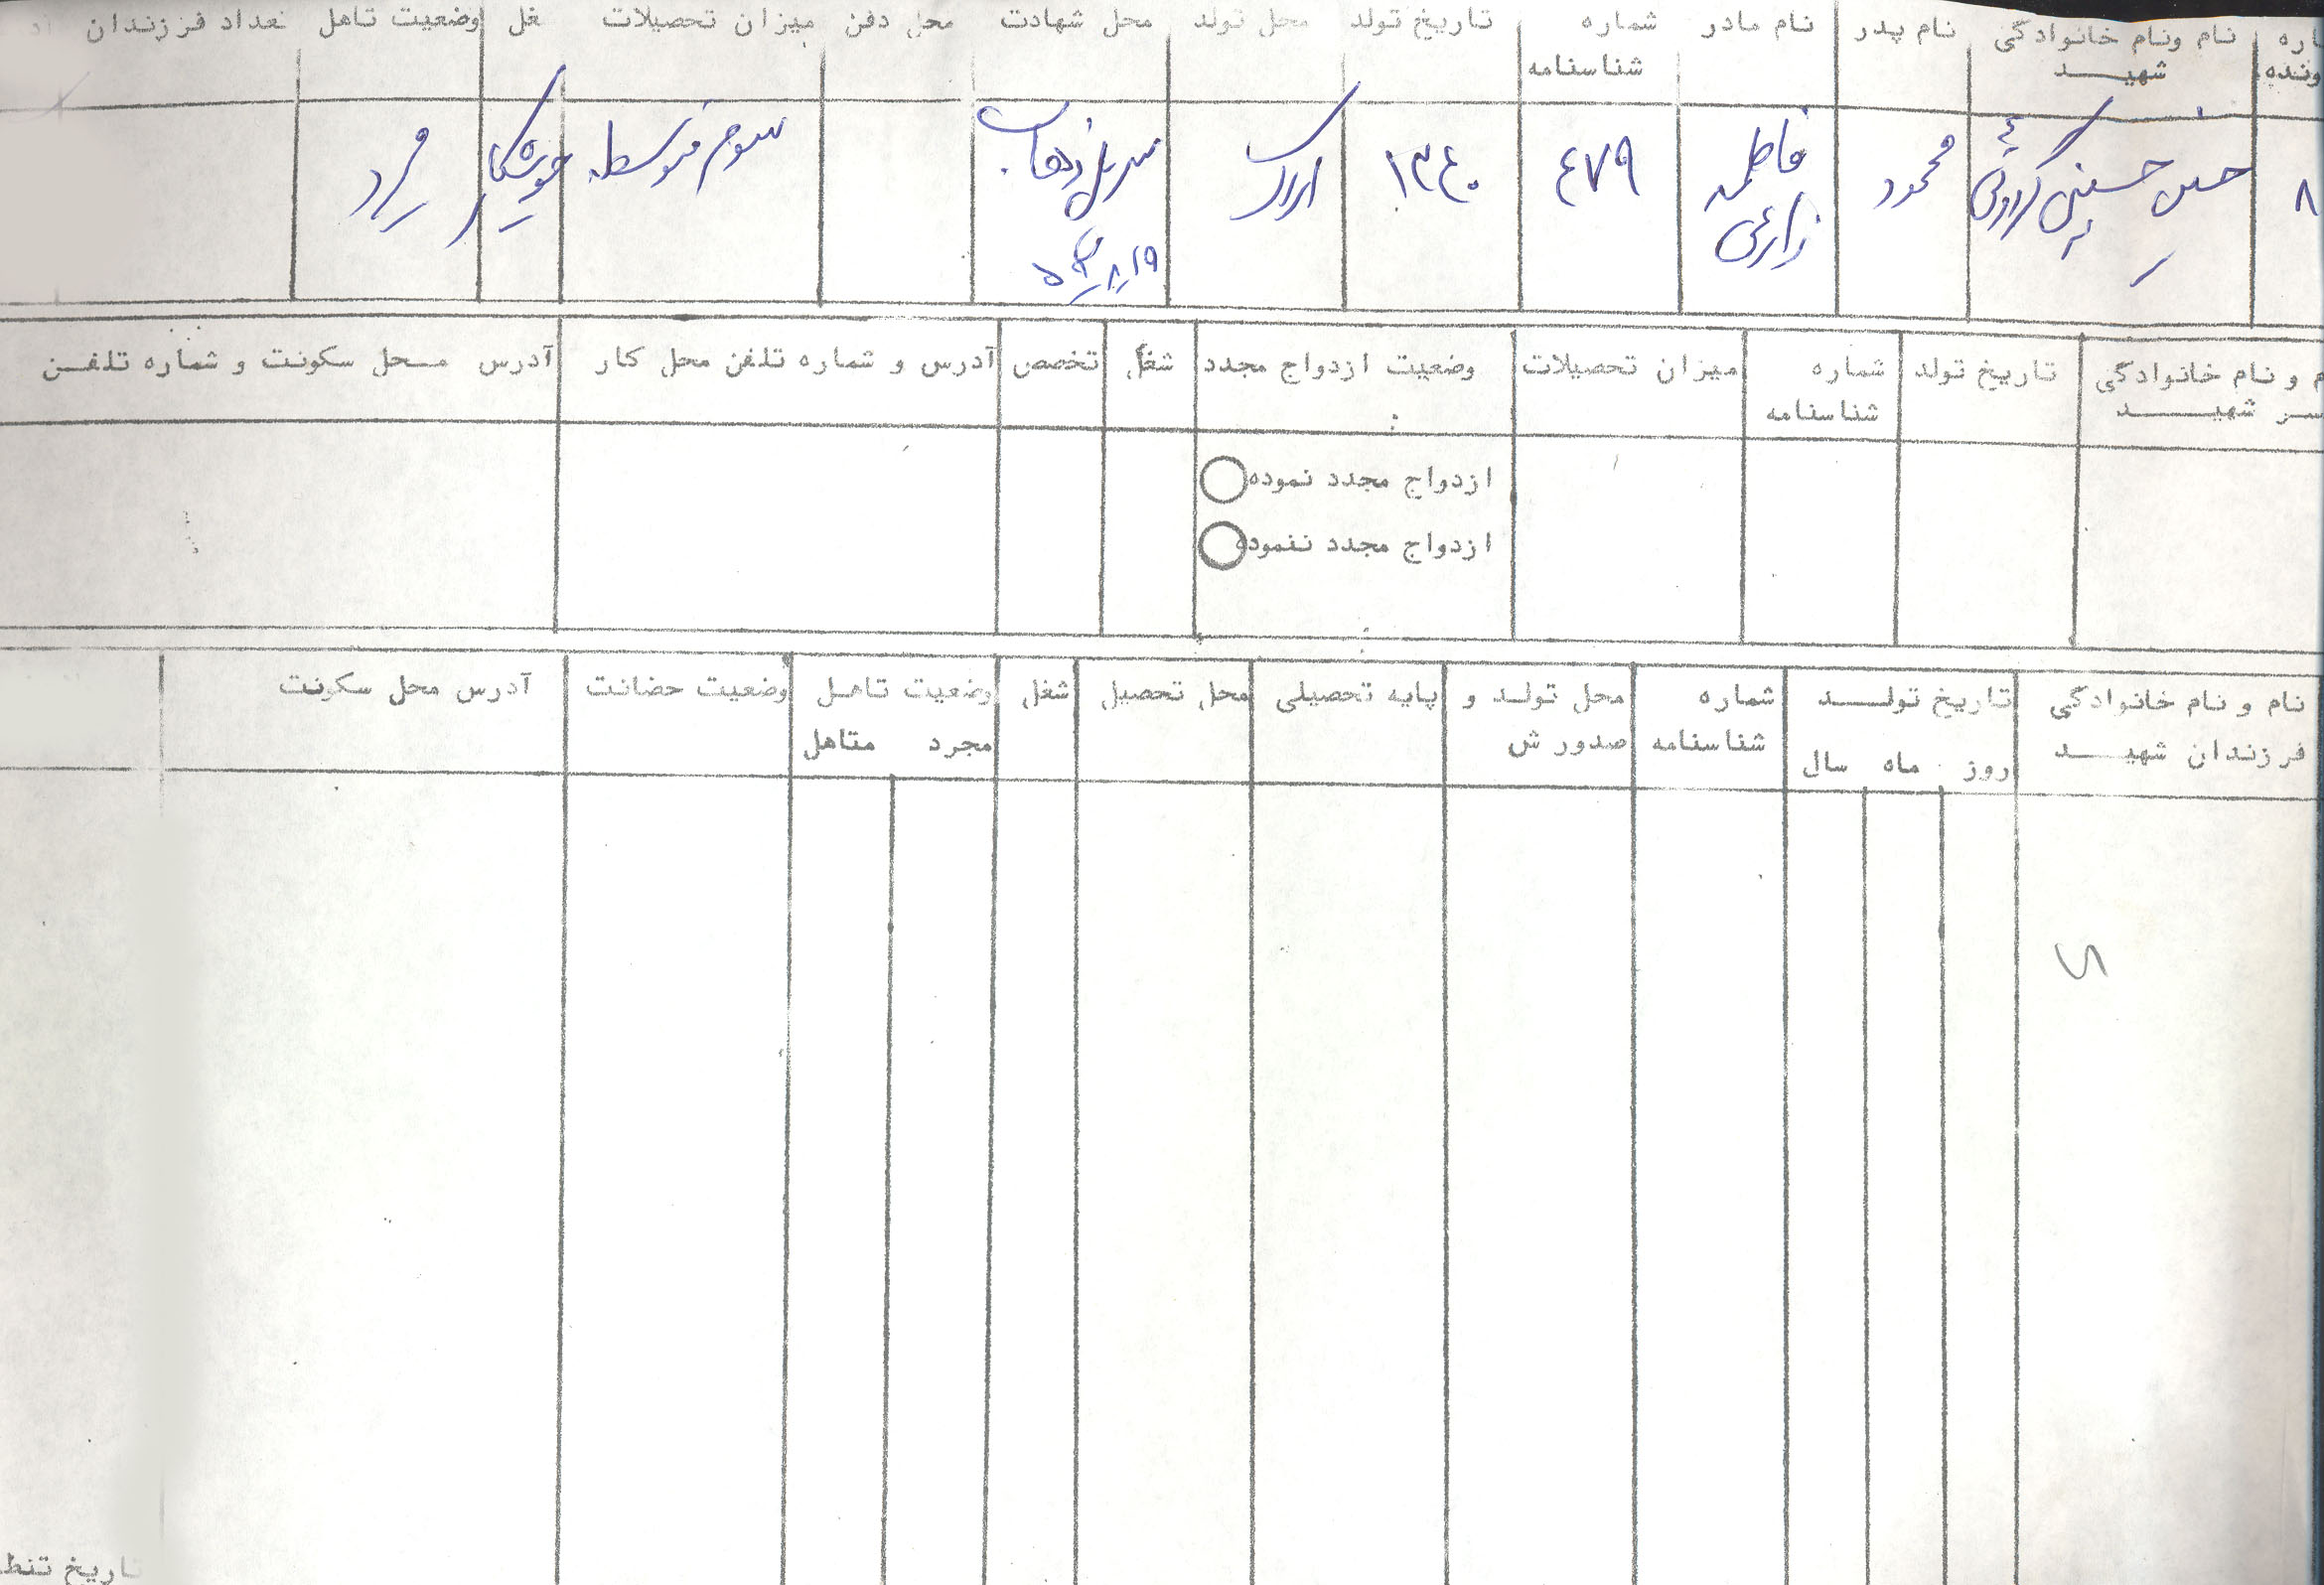 نام ونام خانوادگی شهیــــد
نام پدر
نام مادر
شماره شناسنامه
تاریخ تولد
محل تولد
محل شهادت
محل دفن
میزان تحصیلات
غل
وضعیت تاهل
تعداد فرزندان
۸
حسین حسینی
محمود
فاطمه زارعی
٤۷۹
۱۳٤۰
اراک
سرپل ذهاب
سوم متوسطه
جوشکار
مجرد
شهیـــــد
تاریخ تولد
شماره شناسنامه
میزان تحصیلات
وضعیت ازدواج مجدد
شغل
تخصص
آدرس و شماره تلفن محل کار
آدرس مـحل سکونت و شماره تلفـن
ازدواج مجدد نموده
ازدواج مجدد ننموده
نام و نام خانوادگی فرزندان شهیــــد
تاریخ تولـــــد
روز ماه سال
شماره شناسنامه
محل تولـد و صدور ش
پایه تحصیلی
محل تحصیل
شغل
وضعیت تاهـل
مجرد متاهل
وضعیت حضانت
آدرس محل سکونت